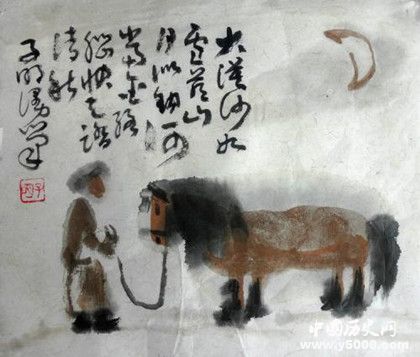 大漠沙如
雪燕山
月似钩何
当金络
脑快走踏
清秋
中国历史网
www.y5000.com